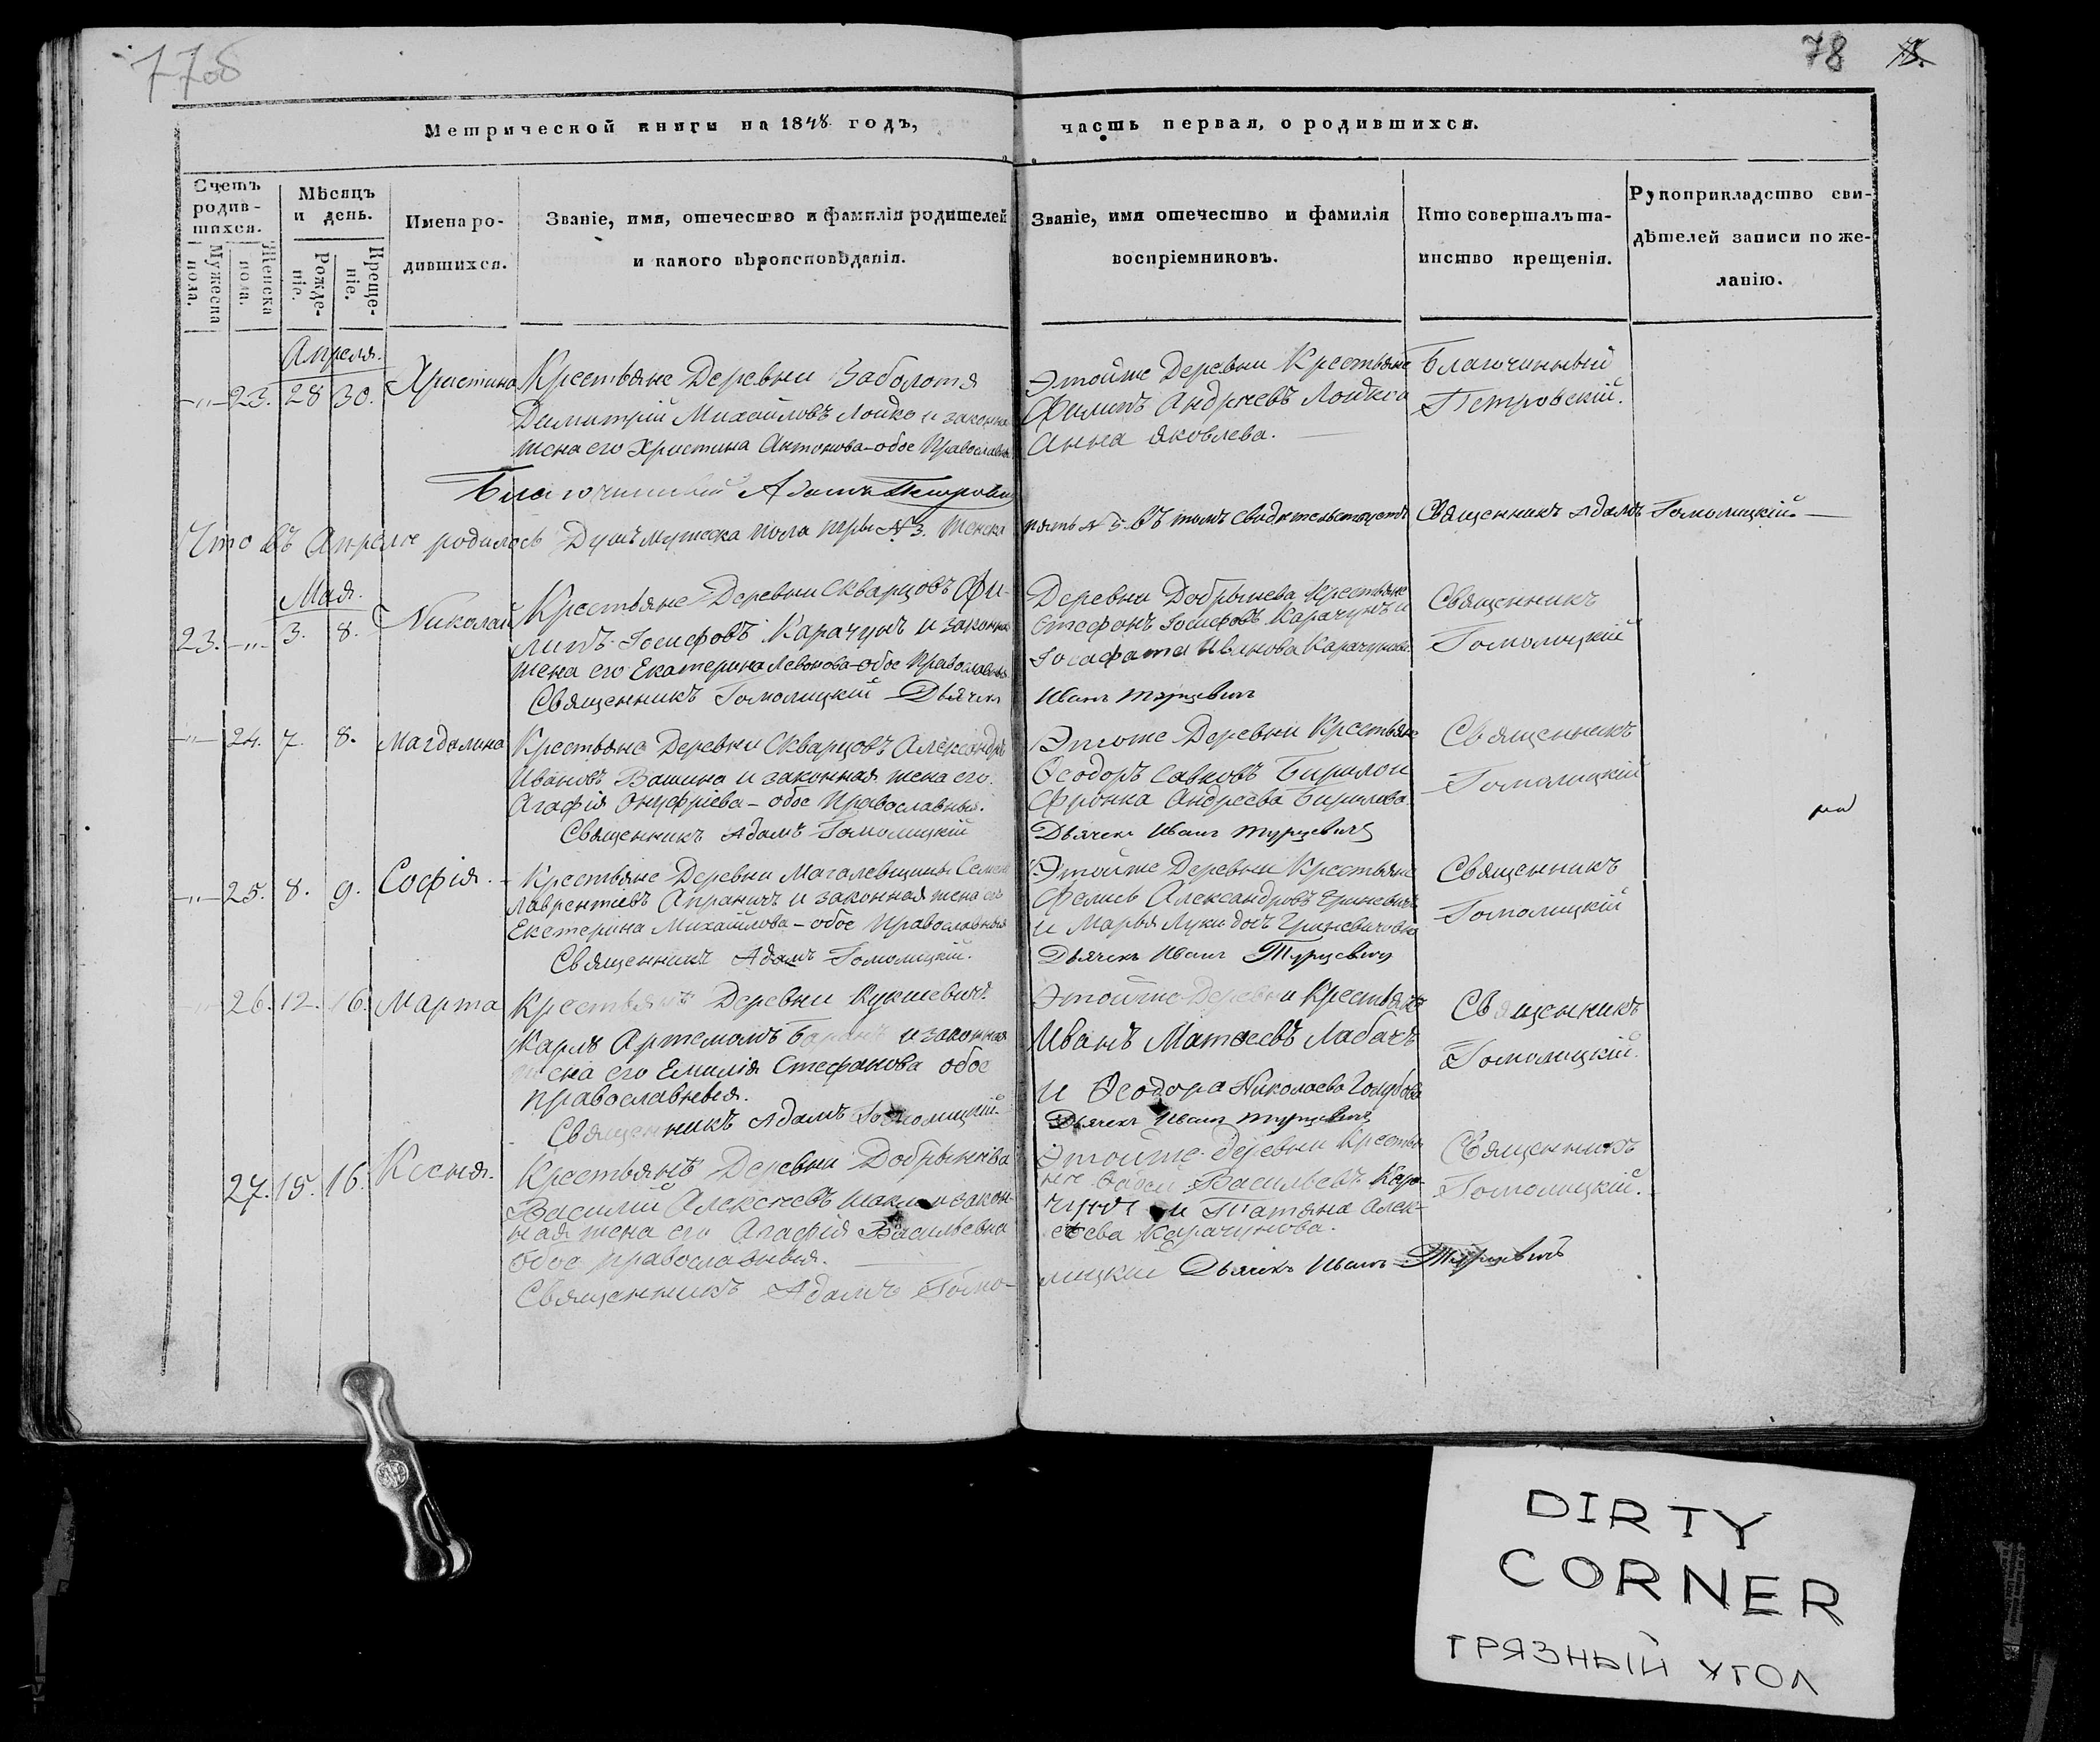 77об
78
Метрической книги на 1848 годъ,
часть первая, о родившихся.
Счетъ родив-шихся.
Мужеска пола.
Женска пола.
Мѣсяцъ и день.
Рожде-ніе.
Креще-ніе.
Имена ро-
дившихся.
Званіе, имя, отечество и фамилія родителей
и какого вѣроисповѣданія.
Званіе, имя отечество и фамилія
воспріемниковъ.
Кто совершалъ та-
инство крещенія.
Рукоприкладство сви-
дѣтелей записи по же-
ланію.
Апреля.
-"- 23. 28 30. Христина
Крестьяне Деревни Заболотя
Димитрій Михайловъ Лойко и законна
жена его Христина Антонова - обое Православны
Этойже Деревни Крестьяне
Филипъ Андреевъ Лойко
Анна Яковлева.
Благочинный
Петровскій.
Благочинный Адамъ
Что въ Апреле родилось Душъ мужеска пола три № 3. Женска
пять № 5. въ томъ Свидетельствуетъ Священникъ Адамъ Гомолицкій
Мая.
23. -"- 3. 8. Николай
Крестьяне Деревни Скварцовъ Фи-
липъ Іосифовъ Карачунъ и законна
жена его Екатерина Левонова - обое Православны
Священникъ Гомолицкій Дьячекъ
Деревни Добрынева Крестьяне
Стефанъ Іосифовъ Карачунъ и
Іосафата Иванова Карачунова
Иванъ Турцевичъ
Священникъ
Гомолицкій
-"- 24. 7. 8. Магдалина
Крестьяне Деревни Скварцовъ Александръ
Ивановъ Вашина и законная жена его
Агафія Онуфріева - обое Православныя.
Священникъ Адамъ Гомолицкій
Этоже Деревни Крестьяне
Ѳеодоръ Савковъ
Андреева
Дьячекъ Иванъ Турцевичъ
Священникъ
Гомолицкій
-"- 25. 8. 9. Софія.
Крестьяне Деревни Магалевщины Семенъ
Лаврентіевъ Апраничъ и законная жена его
Екатерина Михайлова - обое Православныя
Священникъ Адамъ Гомолицкій.
Этойже Деревни Крестьяне
Александровъ Гриневичъ
и Марья Луки дочь Гриневичова
Дьячекъ Иванъ Турцевичъ
Священникъ
Гомолицкій
26. 12. 16. Марта
Крестьянъ Деревни Кукшевичъ
Карлъ Баранъ и законная
жена его Емилія Стефанова обое
православныя.
Священникъ Адамъ Гомолицкій
Этойже Деревни Крестьянъ
Иванъ Матѳеевъ Лабачъ
и Ѳеодора Николаева Голубова
Дьячекъ Иванъ Турцевичъ
Священникъ
Гомолицкій.
27. 15. 16. Ксенія.
Крестьянъ Деревни Добрынева
Василій Алексеевъ и закон-
ная жена его Агафія Васильевна
обое православныя.
Священникъ Адамъ Гомо-
Этойже Деревни Крестья
не Васильевъ Кара-
чунъ и Татяна Алек-
сѣева Карачунова.
лицкій Дьячекъ Иванъ Турцевичъ
Священникъ
Гомолицкій.
DIRTY
CORNER
ГРЯЗНЫЙ УГОЛ